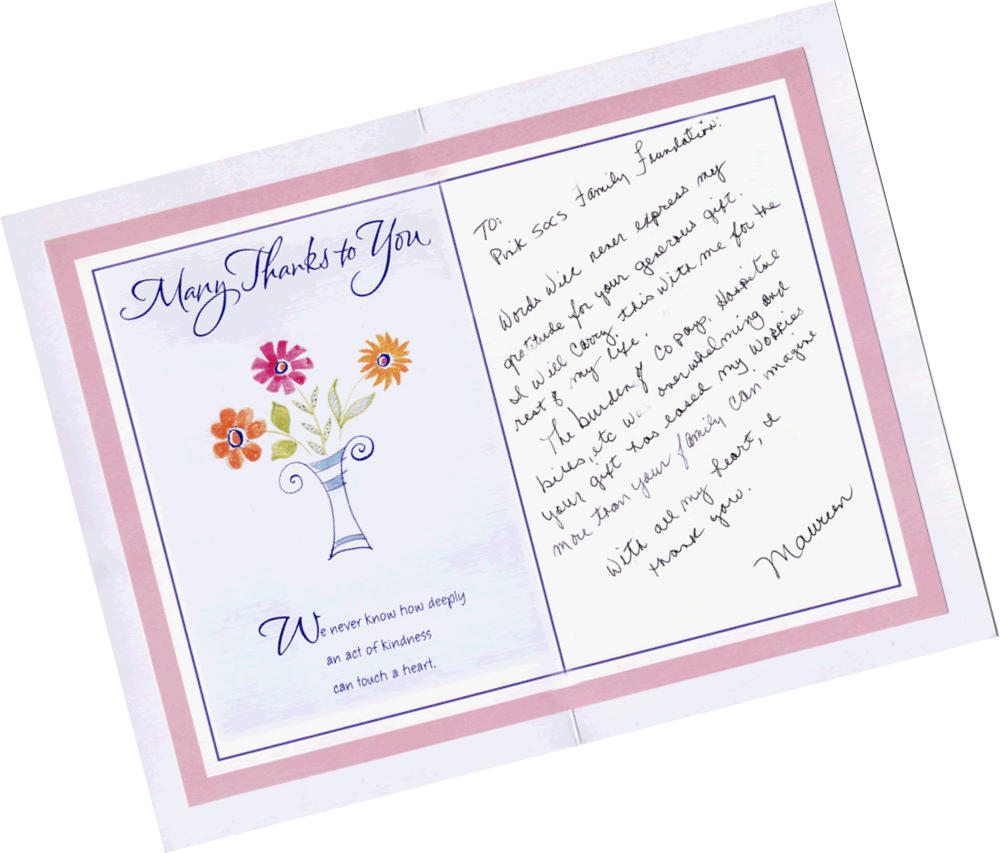 Many Thanks to You
We never know how deeply
an act of kindness
can touch a heart.
TO:
Pink Socs Family Foundation:
Words will never express my
gratitude for your generous gift.
I will carry this with me for the
rest of my life.
The burden of copays, Hospital
bills, etc was overwhelming and
your gift has eased my worries
more than your family can imagine
With all my heart, I
thank you.
Maureen